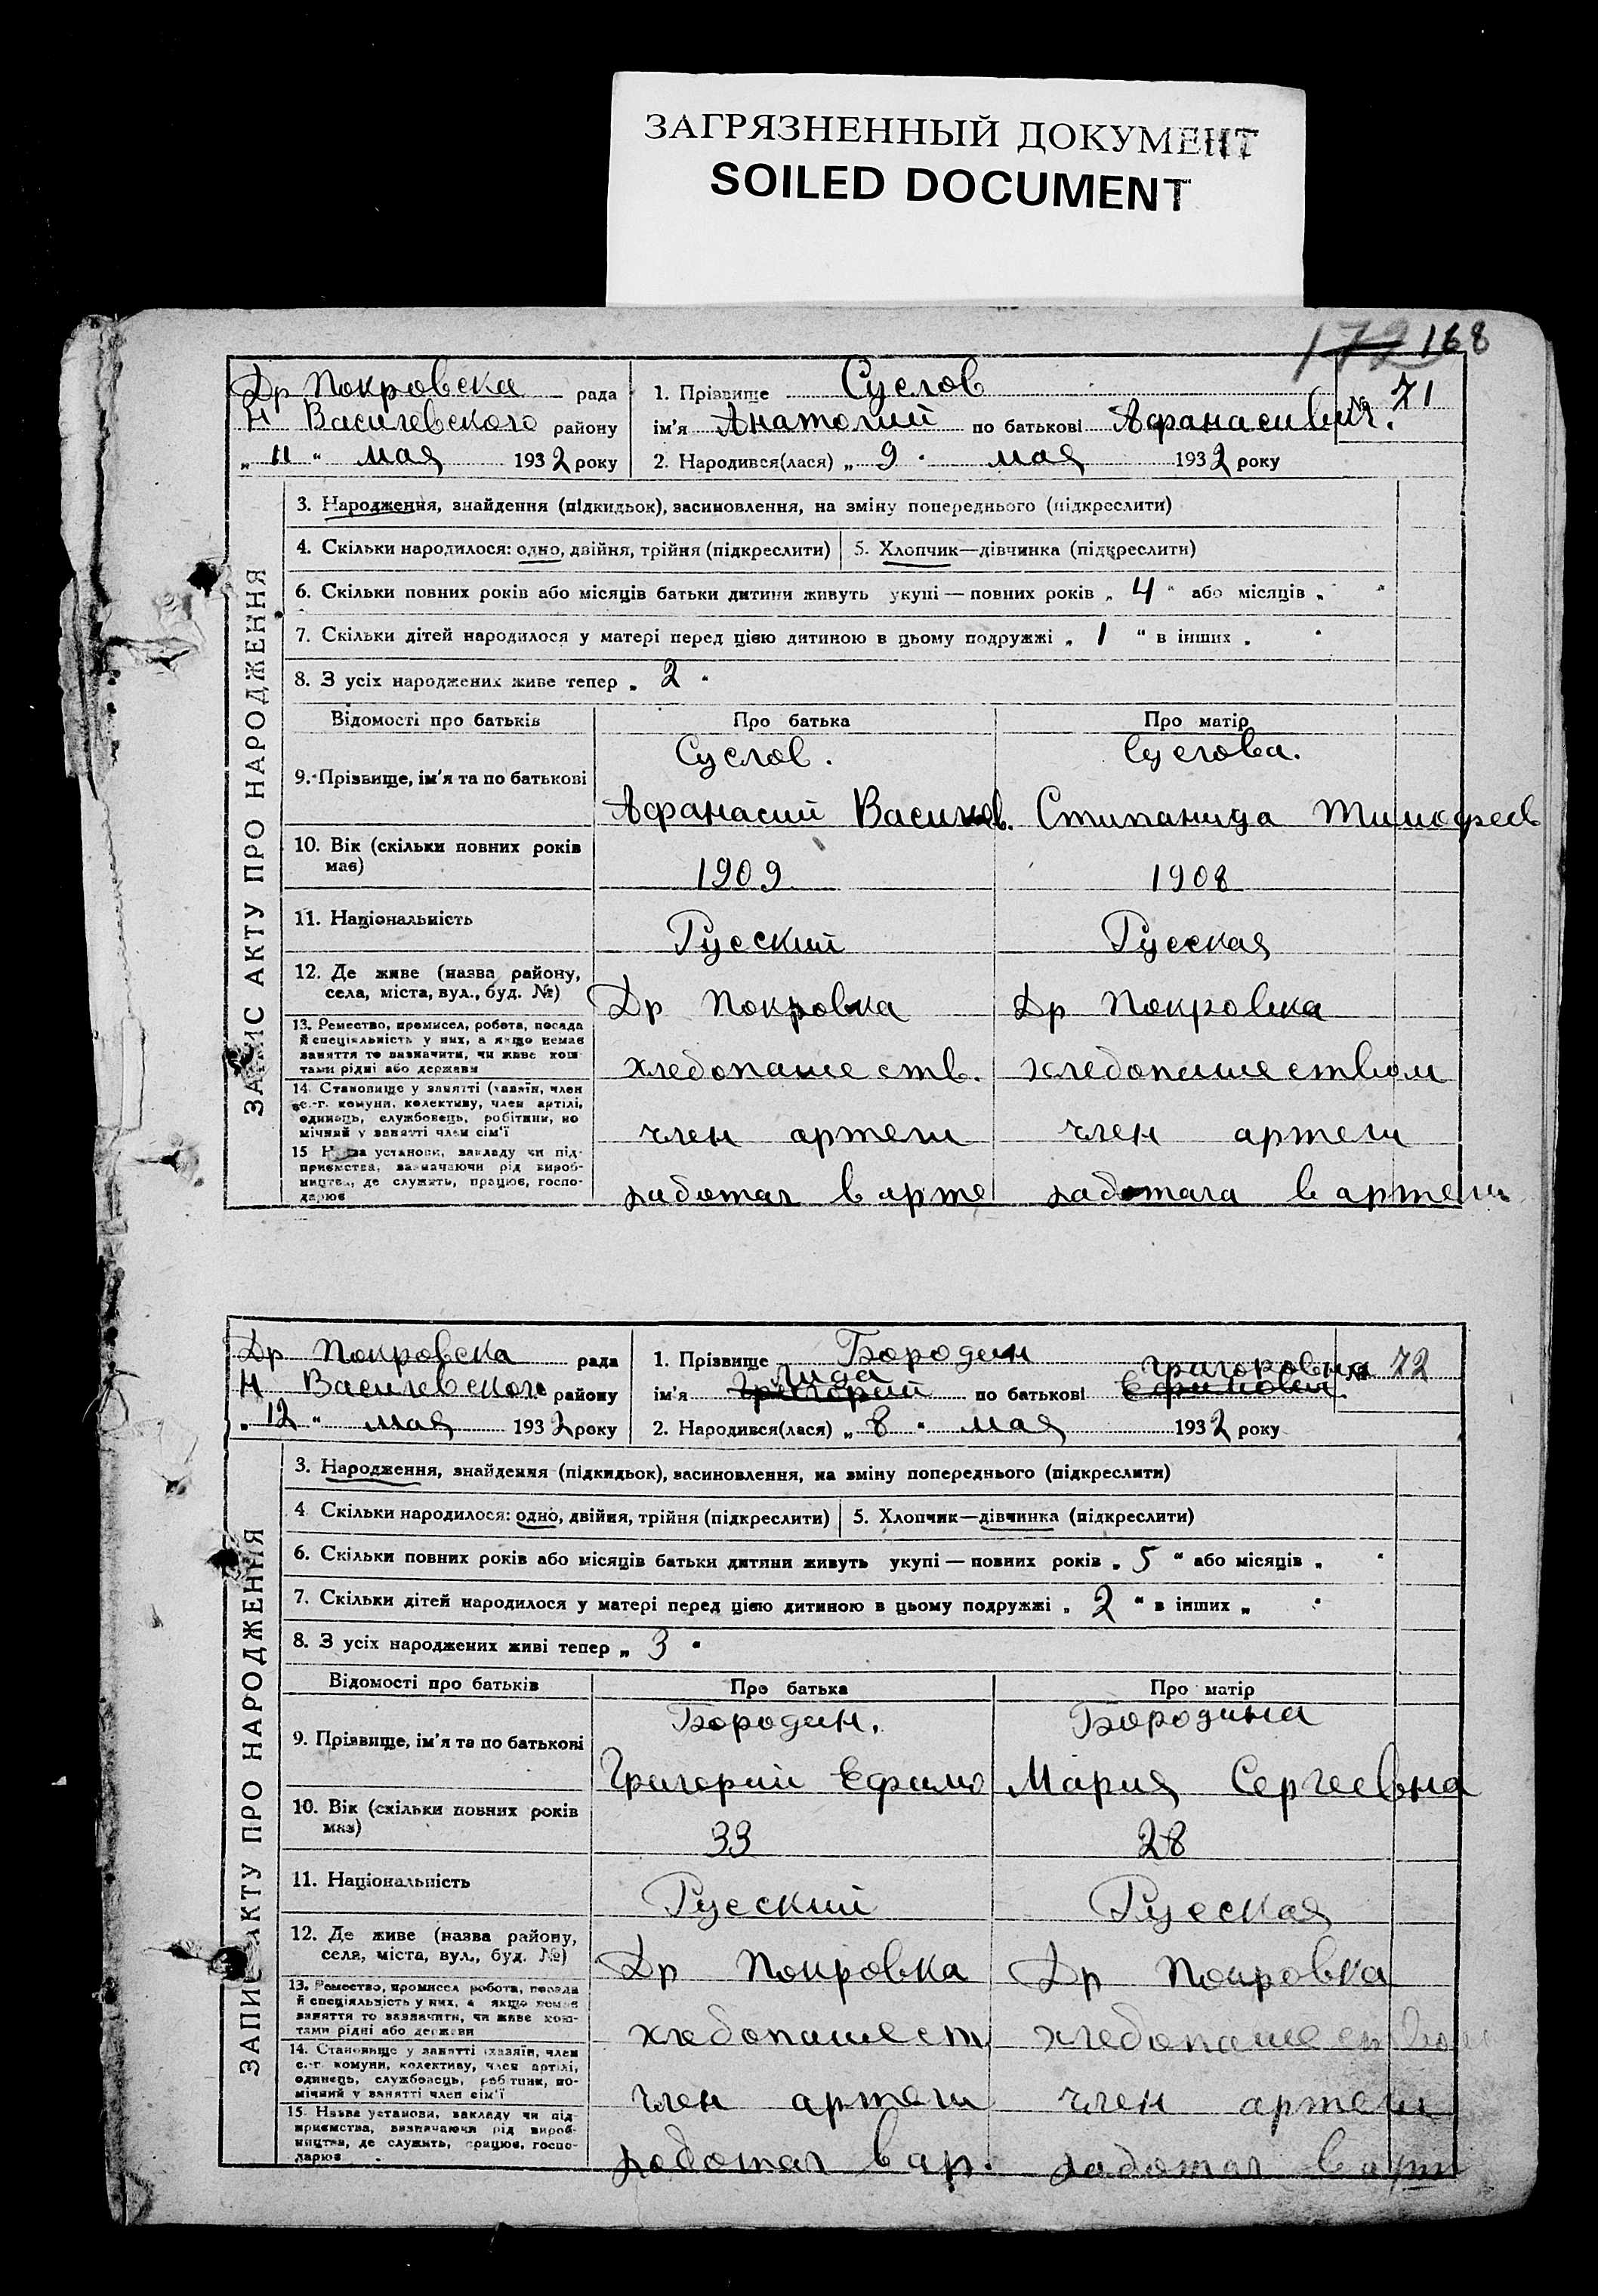 ЗАГРЯЗНЕННЫЙ ДОКУМЕНТ
SOILED DOCUMENT
172 168
Др Покровска рада
Н Василевского районy
„ 11 “ мая 1932 року
1. Прізвище Суслов
№ 71
ім'я Анатолий по батькові Афанасивич.
2. Народився(лася) „ 9 “ мая 1932 року
ЗАПИС АКТУ ПРО НАРОДЖЕННЯ
3. Народження, знайдення (підкидьок), засиновлення, на зміну попереднього (підкреслити)
4. Скільки народилося: одно, двійня, трійня (підкреслити) 5. Хлопчик—дівчинка (підкреслити)
6. Скільки повних років або місяців батьки дитини живуть укупі — повних років „ 4 “ або місяців „ “
7. Скільки дітей народилося у матері перед цією дитиною в цьому подружжі „ 1 “ в інших „ “
8. З усіх народжених живе тепер „ 2 “
Відомості про батьків Про батька Про матір
Суслов. Суслова.
9. Прізвище, ім'я та по батькові
Афанасий Василев. Стипанида Тимофеев
10. Вік (скільки повних років
має)
1909 1908
11. Національність
Русский Русская
12. Де живе (назва району,
села, міста, вул., буд. №)
Др Покровка Др Покровка
13. Ремество, промисел, робота, посада
й спеціяльність у них, а якщо немає
заняття то зазначити, чи живе кош-
тами рідні або держави
хлебопашеств. хлебопашеством
14. Становище у занятті (хазяїн, член
с.-г. комуни, колективу, член артілі,
одинець, службовець, робітник, по-
мічний у занятті член сім'ї
член артели член артели
15 Назва установи, закладу чи під-
приємства, зазначаючи рід вироб-
ництва, де служить, працює, госпо-
дарює
работал в арте работала в артели
Др Покровска рада
Н Василевского району
„ 12 “ мая 1932 року
1. Прізвище Бородин
72
Лида Григоровна
ім'я Григорий по батькові Ефимович.
2. Народився(лася) „ 8 “ мая 1932 року
ЗАПИС АКТУ ПРО НАРОДЖЕННЯ
3. Народження, знайдення (підкидьок), засиновлення, на зміну попереднього (підкреслити)
4 Скільки народилося: одно, двійня, трійня (підкреслити) 5. Хлопчик—дівчинка (підкреслити)
6. Скільки повних років або місяців батьки дитини живуть укупі — повних років „ 5 “ або місяців „ “
7. Скільки дітей народилося у матері перед цією дитиною в цьому подружжі „ 2 “ в інших „ “
8. З усіх народжених живі тепер „ 3 “
Відомості про батьків Про батька Про матір
Бородин. Бородина
9. Прізвище, ім'я та по батькові
Григорий Ефимо Мария Сергеевна
10. Вік (скільки повних років
має)
33 28
11. Національність
Русский Русская
12. Де живе (назва району,
села, міста, вул., буд. №)
Др Покровка Др Покровка
13. Ремество, промисел робота, посада
й спеціяльність у них, а якщо немає
заняття то зазначити, чи живе кош-
тами рідні або держави
хлебопашест хлебопашеством
14. Становище у занятті (хазяїн, член
с.-г. комуни, колективу, член артілі,
одинець, службовець, робітник, по-
мічний у занятті член сім'ї
член артели член артели
15. Назва установи, закладу чи під-
приємства, зазначаючи рід вироб-
ництва, де служить, працює, госпо-
дарює
работал в ар. работал в арт